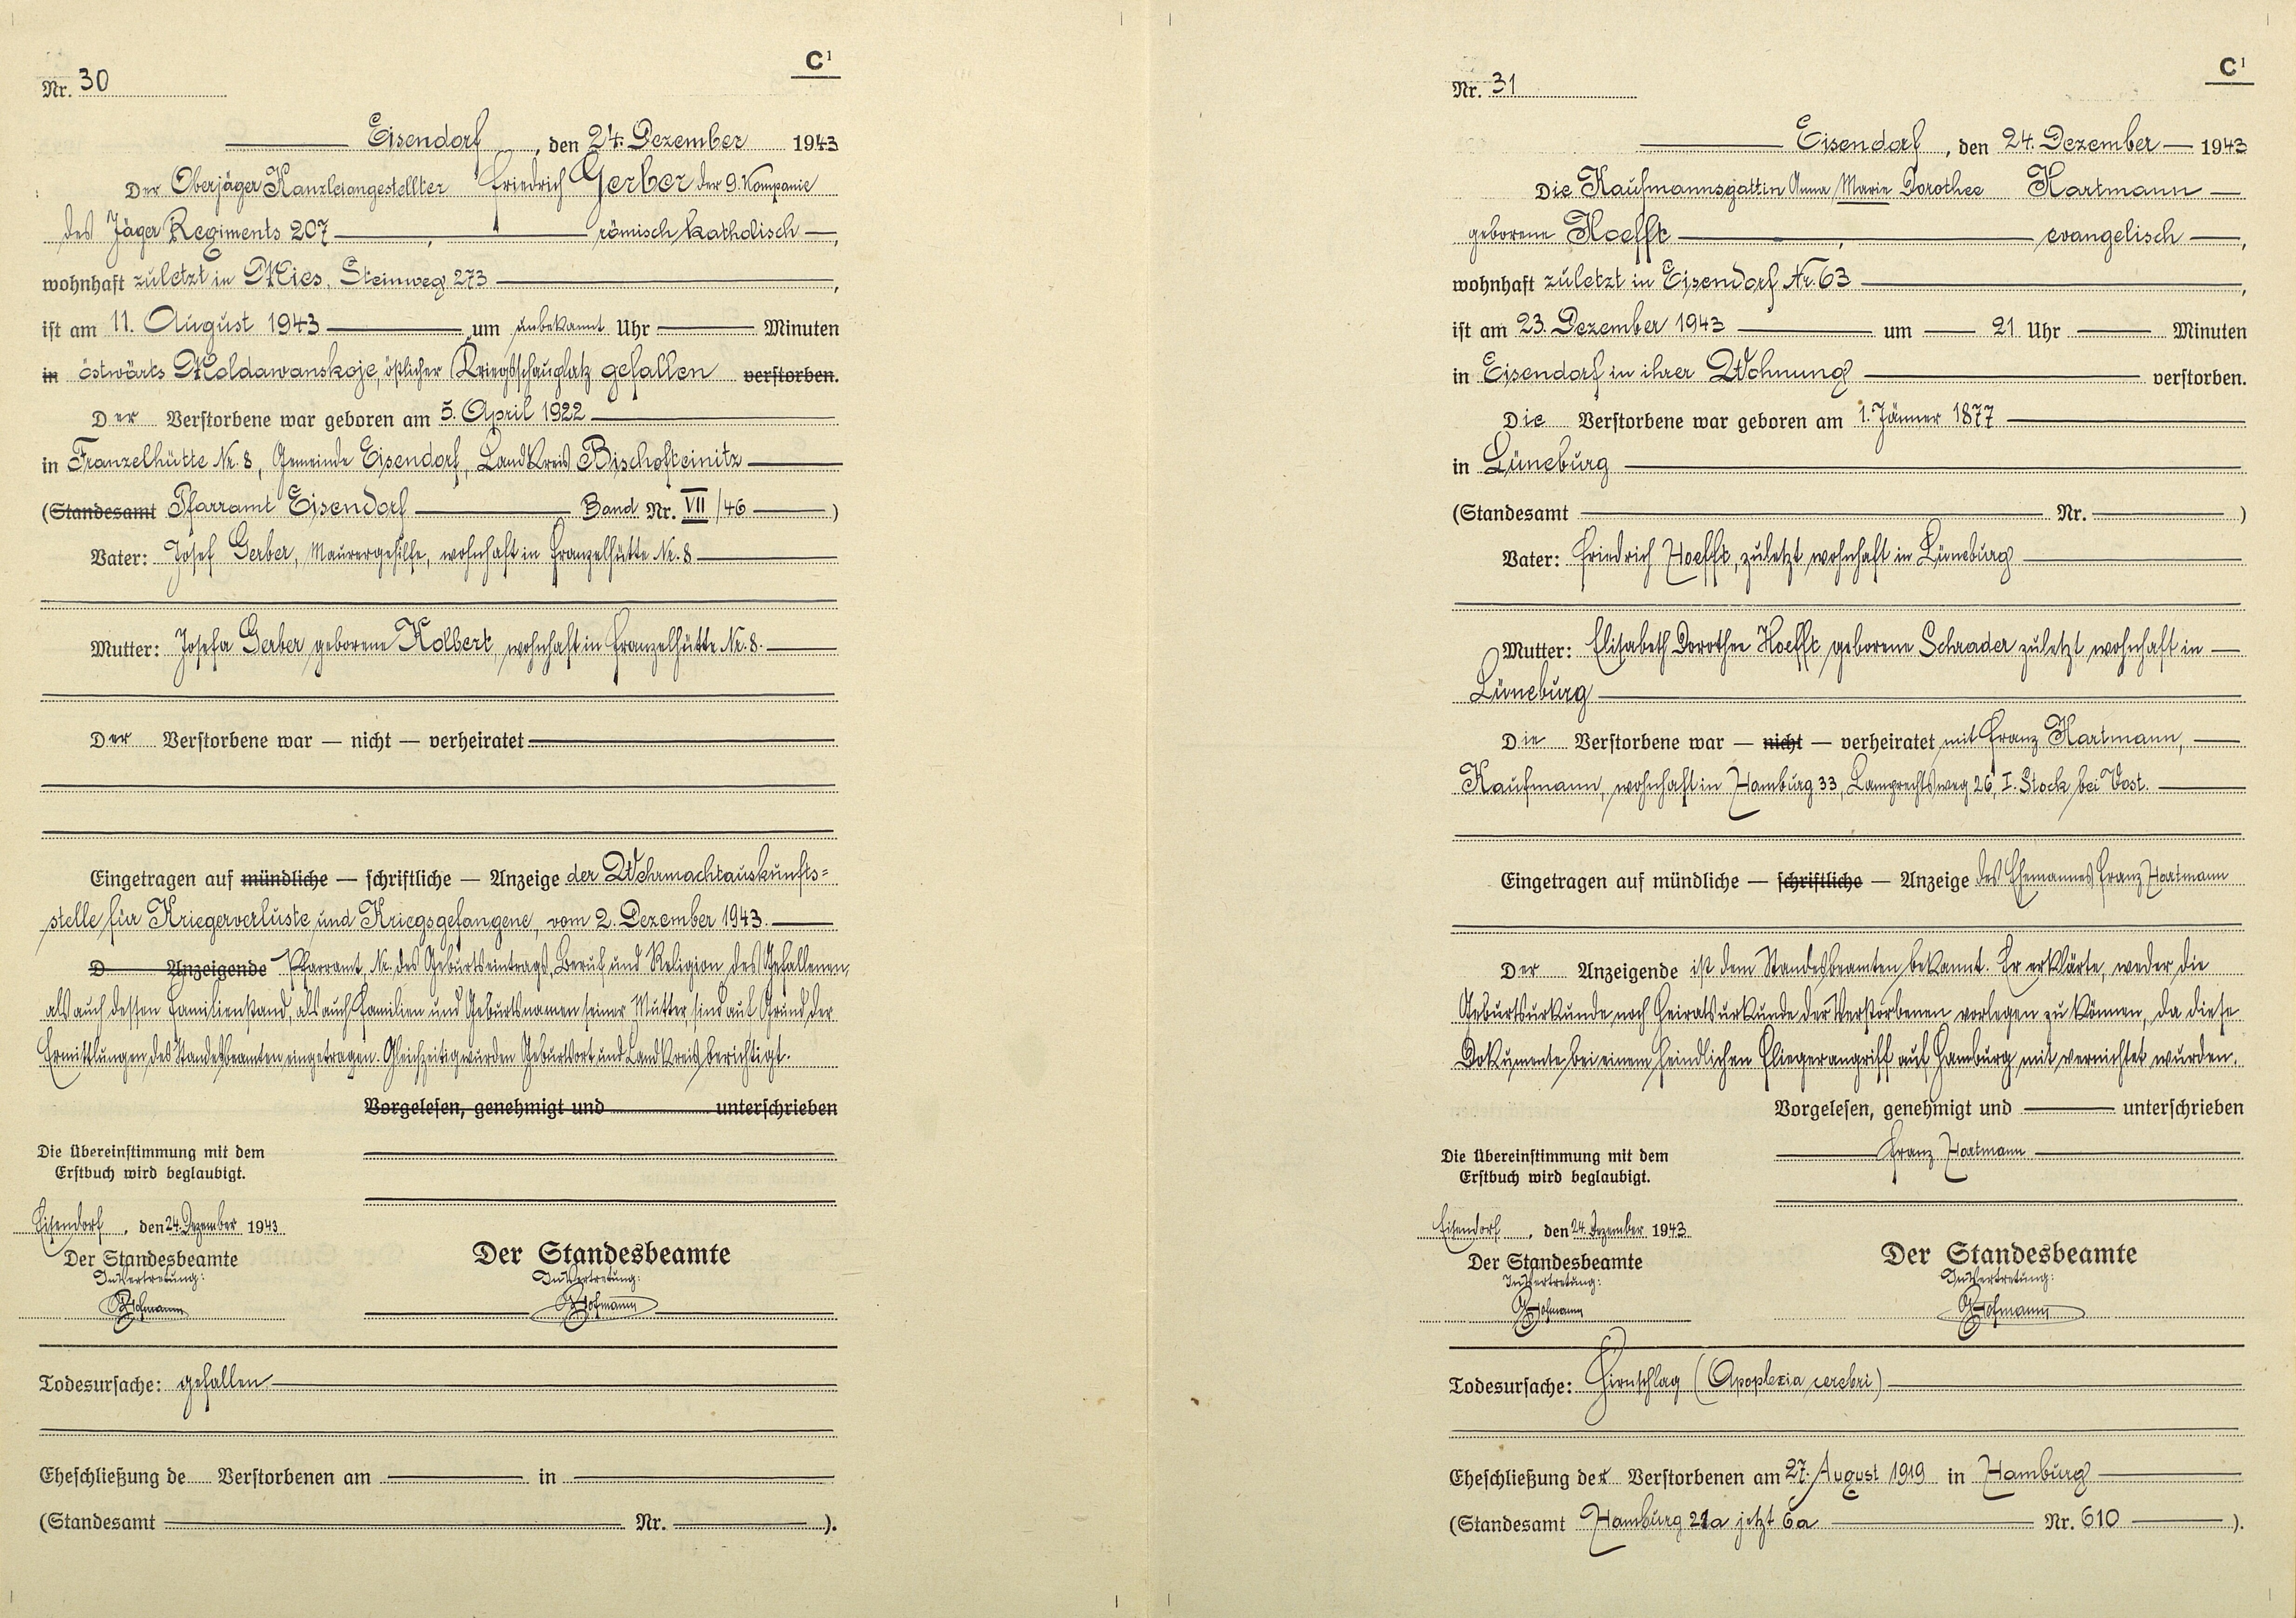 C¹
Nr. 30
Eisendorf, den 24. Dezember 1943
Der Oberjäger Kanzleiangestellter Friedrich Gerber der 9. Kompanie
des Jäger Regiments 207 römisch katholisch,
wohnhaft zuletzt in Mies, Steinweg 273,
ist am 11. August 1943 um unbekannt Uhr Minuten
in ostwärts Moldawanskoje, östlicher Kriegsschauplatz gefallen verstorben.
Der Verstorbene war geboren am 5. April 1922
in Franzelhütte Nr. 8, Gemeinde Eisendorf, Landkreis Bischofteinitz
(Standesamt Pfarramt Eisendorf Band Nr. VII/46)
Vater: Josef Gerber, Maurergehilfe, wohnhaft in Franzelhütte Nr. 8
Mutter: Josefa Gerber geborene Kolbert, wohnhaft in Franzelhütte Nr. 8.
Der Verstorbene war — nicht — verheiratet
Eingetragen auf mündliche — schriftliche — Anzeige der Wehrmachtauskunfts=
stelle für Kriegerverluste und Kriegsgefangene, vom 2. Dezember 1943.
D Anzeigende Pfarramt, Nr. des Geburtseintrags, Beruf und Religion des Gefallenen,
als auch dessen Familienstand, als auch Familien und Geburtsnamen seiner Mutter, sind auf Grund der
Ermittlungen des Standesbeamten eingetragen. Gleichzeitig wurden Geburtsort und Landkreis berichtigt.
Vorgelesen, genehmigt und unterschrieben
Die Übereinstimmung mit dem
Erstbuch wird beglaubigt.
Eisendorf, den 24. Dezember 1943
Der Standesbeamte
In Vertretung:
Hofmann
Der Standesbeamte
In Vertretung:
Hofmann
Todesursache: gefallen
Eheschließung de Verstorbenen am in
(Standesamt Nr. ).
C¹
Nr. 31
Eisendorf, den 24. Dezember 1943
Die Kaufmannsgattin Anna Marie Dorothee Hartmann
geborene Hoefft, evangelisch,
wohnhaft zuletzt in Eisendorf Nr. 63,
ist am 23. Dezember 1943 um 21 Uhr Minuten
in Eisendorf in ihrer Wohnung verstorben.
Die Verstorbene war geboren am 1. Jänner 1877
in Lüneburg
(Standesamt Nr. )
Vater: Friedrich Hoefft, zuletzt wohnhaft in Lüneburg
Mutter: Elisabeth Dorothee Hoefft geborene Schrader zuletzt wohnhaft in
Lüneburg
Die Verstorbene war — nicht — verheiratet mit Franz Hartmann,
Kaufmann, wohnhaft in Hamburg 33, Lamprechtsweg 26, I. Stock bei Vost.
Eingetragen auf mündliche — schriftliche — Anzeige des Ehemannes Franz Hartmann
Der Anzeigende ist dem Standesbeamten bekannt. Er erklärte, weder die
Geburtsurkunde noch Heiratsurkunde der Verstorbenen vorlegen zu können, da diese
Dokumente bei einem feindlichen Fliegerangriff auf Hamburg mit vernichtet wurden.
Vorgelesen, genehmigt und unterschrieben
Franz Hartmann
Die Übereinstimmung mit dem
Erstbuch wird beglaubigt.
Eisendorf, den 24. Dezember 1943
Der Standesbeamte
In Vertretung:
Hofmann
Der Standesbeamte
In Vertretung:
Hofmann
Todesursache: Hirnschlag (Apoplexia cerebri)
Eheschließung der Verstorbenen am 27. August 1919 in Hamburg
(Standesamt Hamburg 21a jetzt 6a Nr. 610).